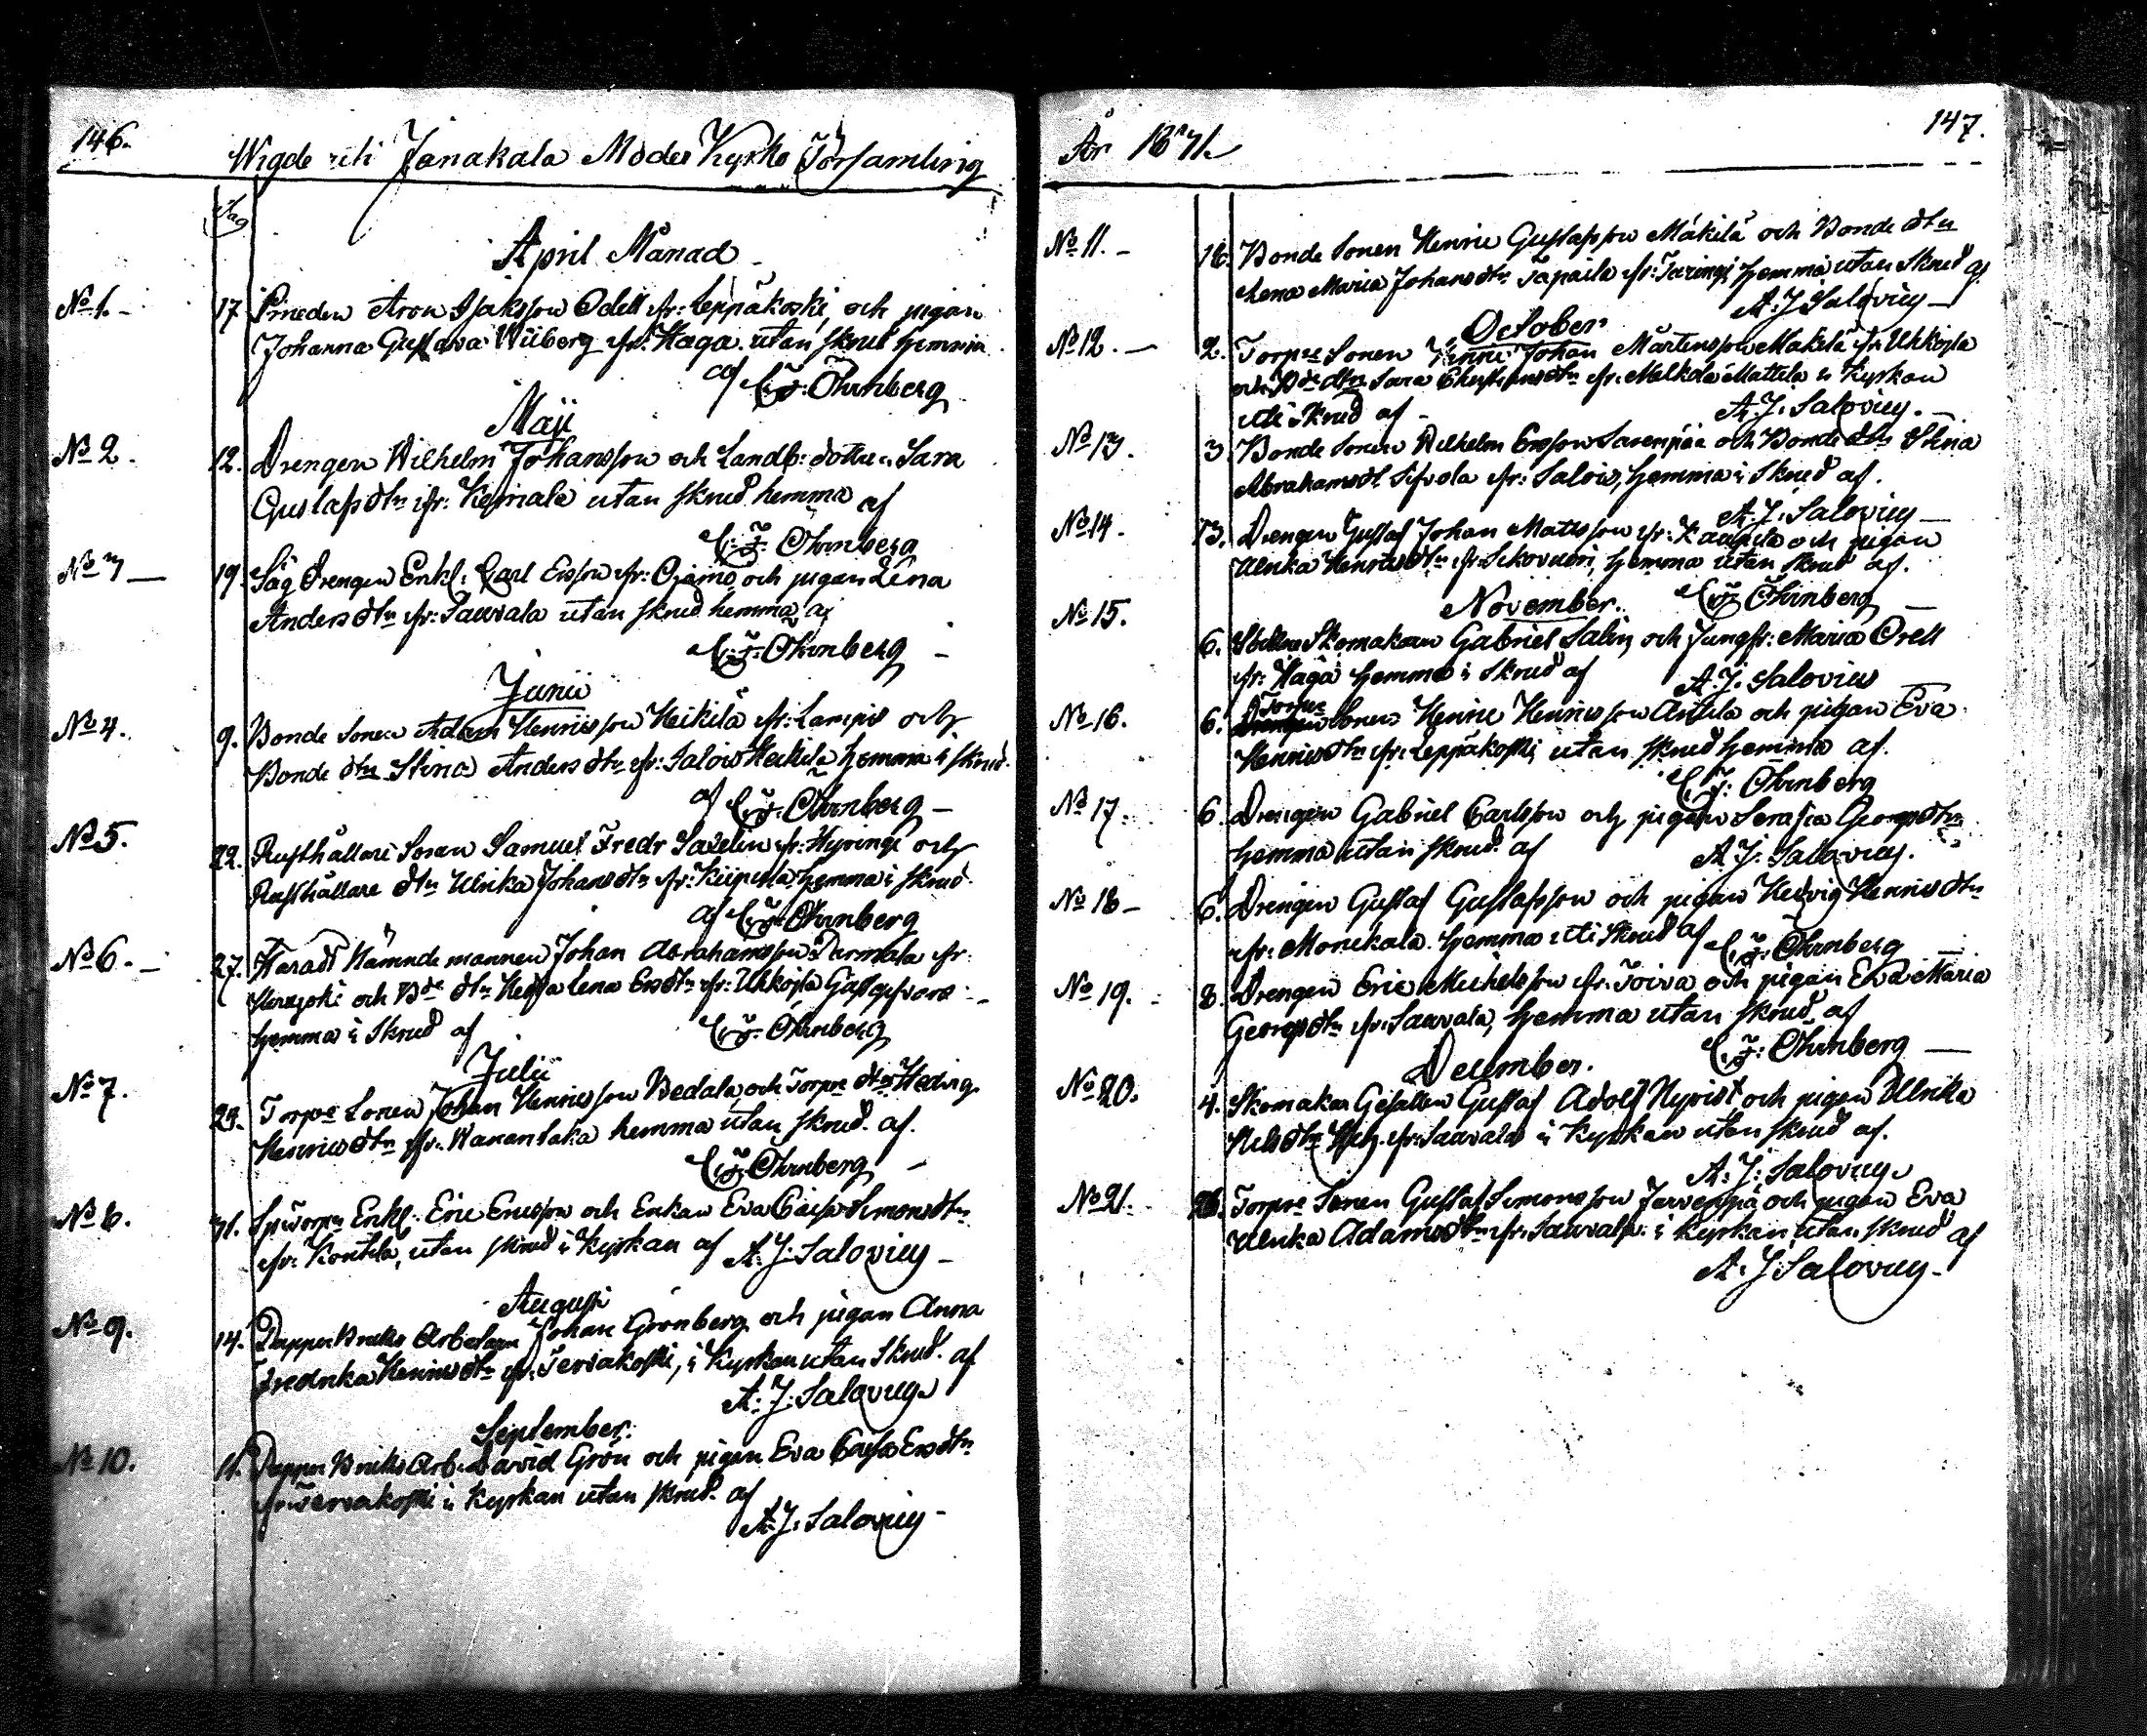 146.
Wigde uti Janakala Moder Kyrko Församling
Dag
April Månad
No 1. 17 Smeden Aron Isaksson Odell fr: Leppäkoski, och pigan
Johanna Gustava Wiiberg fr: Haga utan skrud hemma
af C. J. Öhrnberg
Maji
No 2. 12. Drengen Wilhelm Johansson och Landb: dotter: Sara
Gustafsdtr fr: Kernala utan skrud hemma af
C. J. Öhrnberg
No 3 19. Såg Drengen Enkl: Carl Ersson fr: Ojamo och pigan Lena
Andersdtr fr: Sauvala utan skrud hemma af
C. J. Öhrnberg
Junii
No 4. 9. Bonde Sonen Adam Henricsson Heikilä fr: Lampis och
Bonde dtr Stina Andersdtr fr: Salois Heikilä hemma i skrud.
af C. J. Öhrnberg
No 5. 22. Rusthållare Sonen Samuel Fredr Savelin fr: Hyvinge och
Rusthållare dtr Ulrika Johansdtr fr: hemma i skrud
af C. J. Öhrnberg
No 6. 27. Härads Nämndemannen Johan Abrahamsson fr:
och Bde dtr Hedda Lena Ersdtr fr: Uhkoila
hemma i Skrud af C. J. Öhrnberg
Julii
No 7. 23. Torpre Sonen Johan Henricsson och Torpre dtr Hedvig
Henricsdtr fr: Wanantaka hemma utan skrud af.
C. J. Öhrnberg
No 8. 31. Enkl: Eric Ericsson och Enkan Eva Caisa Simonsdtr
fr: Kontila, utan skrud i Kyrkan af A. J. Salovius
Augusti
No 9. 14. Pappersbruks Arbetaren Johan Grönberg och pigan Anna
Fredrika Henricsdtr fr: Tervakoski, i Kyrkan utan Skrud. af
A. J. Salovius
September.
No 10. 11. Pappersbruks Arb. David Grön och pigan Eva Caisa Ersdtr
fr: Tervakoski i Kyrkan utan skrud. af
A. J. Salovius
År 1871.
147.
No 11. 18. Bonde Sonen Henric Gustafsson Mäkilä och Bonde dtr
Lena Maria Johansdtr Tapaila fr: Turingi hemma utan Skrud af
A. J. Salovius
October
No 12. 2. Torpre Sonen Henric Johan Mårtensson Mäkilä fr: Uhkoila
och Bde dtr Sara Christiansdtr fr: Melkola Mattila i Kyrkan
uti Skrud af A. J. Salovius.
No 13. 3 Bonde Sonen Wilhelm Ersson Sarenpää och Bonde dtr Stina
Abrahamsdtr fr: Salois, hemma i Skrud af.
A. J. Salovius
No 14. 13. Drengen Gustaf Johan Mattsson fr: och pigan
Ulrika Henricsdtr fr: hemma utan skrud af.
C. J. Öhrnberg
November.
No 15. 6. Skomakaren Gabriel Salin, och Jungfr: Maria Orell
fr: Haga hemma i Skrud af A. J. Salovius
No 16. 6. Torpre Sonen Henric Henricsson Anttila och pigan Eva
Henricsdtr fr: Leppäkoski utan skrud hemma af.
C. J. Öhrnberg
No 17. 6. Drengen Gabriel Carlsson och pigan Serafia Georgsdtr
hemma utan skrud af A. J. Salovius.
No 18 6. Drengen Gustaf Gustafsson och pigan Hedvig Henricsdtr
fr: Monikala hemma uti skrud af C. J. Öhrnberg
No 19. 8. Drengen Eric Michelsson fr: Toiva och pigan Eva Maria
Georgsdtr fr: Sauvala, hemma utan skrud af
C. J. Öhrnberg
December.
No 20. 4. Skomakar Gesällen Gustaf Adolf Nyqvist och pigan Ulrika
Nelsdtr fr: Sauvala i Kyrkan utan skrud af.
A. J. Salovius
No 21. 26. Torpre Sonen Gustaf Simonsson Järvenpä och pigan Eva
Ulrika Adamsdtr fr: Sauvala i Kyrkan utan skrud af
A. J. Salovius